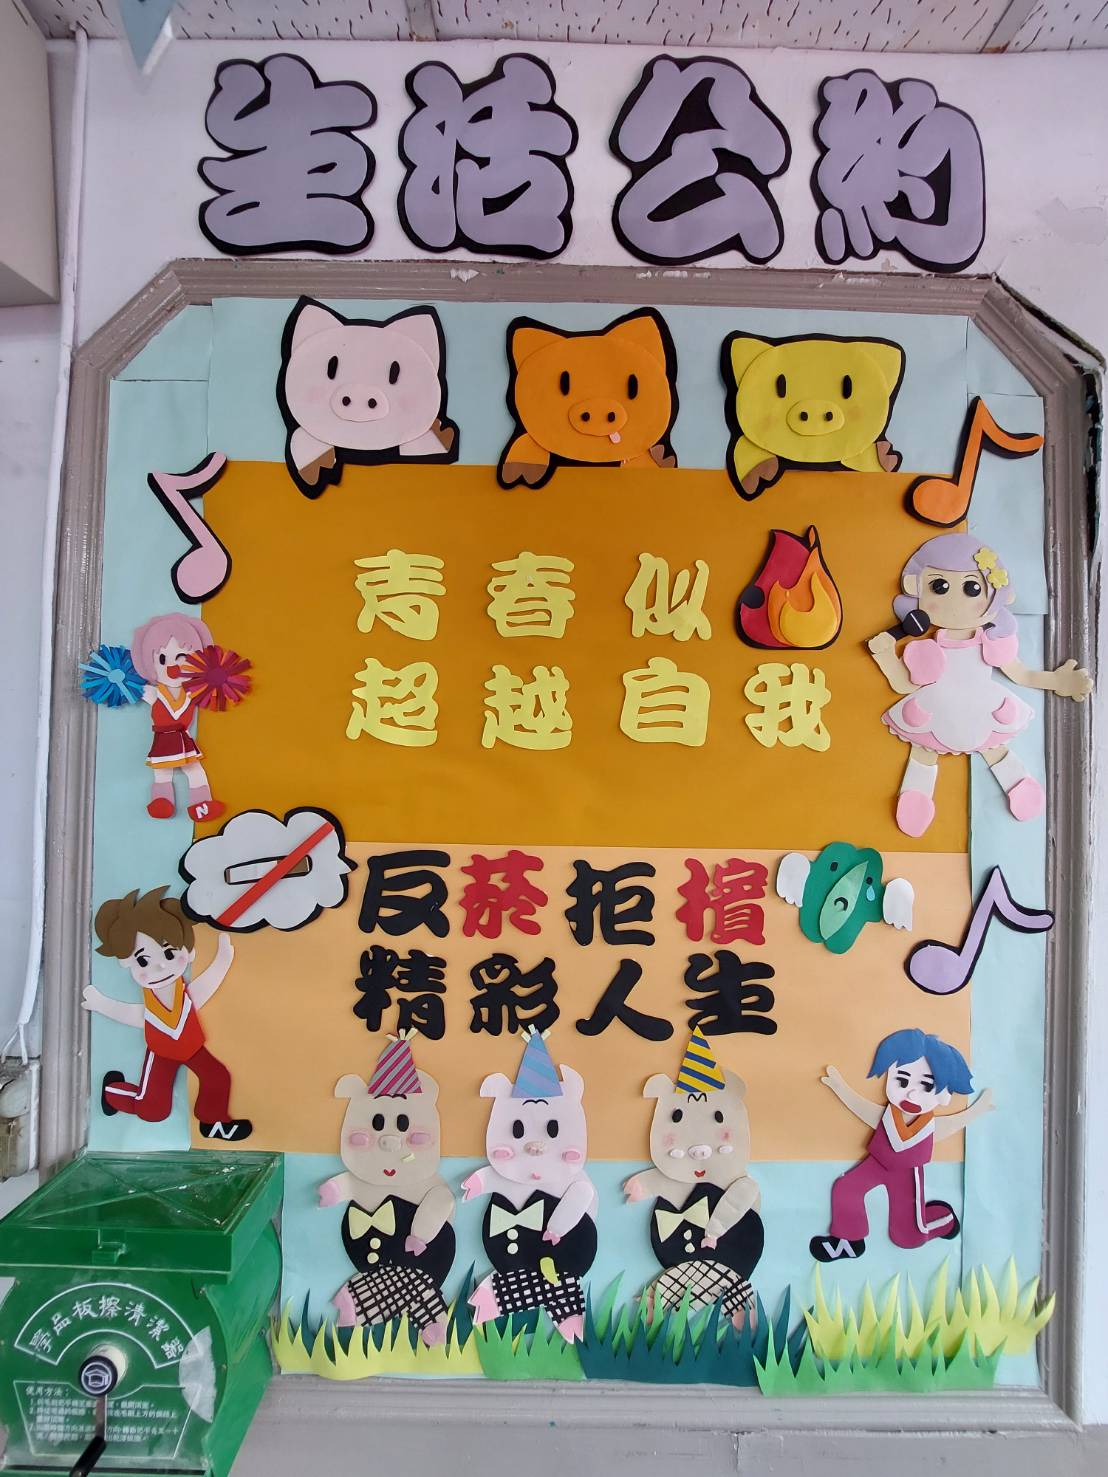 生活公約
青春似
超越自我
反菸拒檳
精彩人生
板擦清潔器
使用方法：